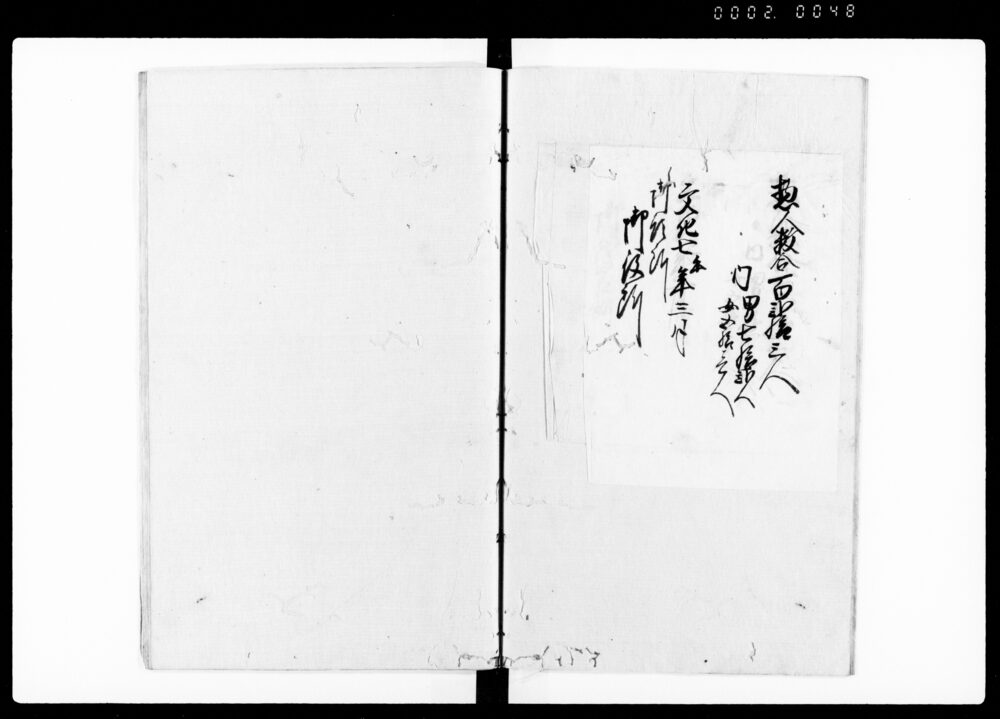 0002. 0048
惣人数合百弐拾三人
内 男七拾弐人
女五拾壱人
文化七午年三月
御預所
御役所